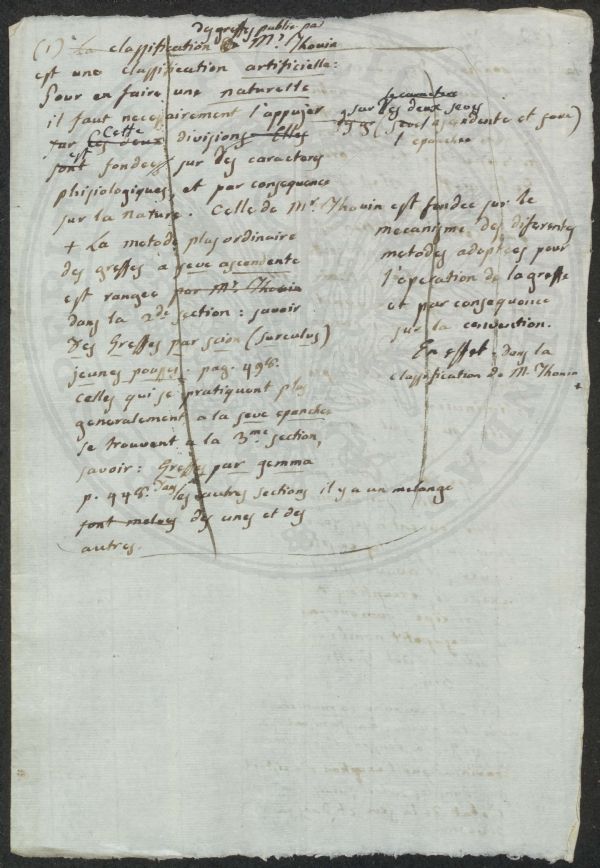 des greffes publie par
(1) La classification de Mr. Thouin
est une classification artificielle:
Pour en faire une naturelle
il faut necessairement l'appuyer sur les deux seves
le caractere
(seve ascendente et seve
epanchée
sur Cette
les deux divisions Elles
est
sont fondées sur des caracteres
phisiologiques et par consequence
sur la nature. Celle de Mr. Thouin est fondée sur le
mecanisme des diferentes
metodes adoptées pour
l'operation de la greffe
et par consequence
sur la convention.
En effet dans la
classification de M. Thouin +
+ La metode plus ordinaire
des greffes à seve ascendente
est rangée par Mr Thouin
dans la 2de section: savoir
Des Greffes par scion (surculus)
jeunes pousses. pag.
Celles qui se pratiquent plus
generalement a la seve epanchée
se trouvent a la 3me section,
savoir: Greffes par gemma
p. dans les autres sections il y a un melange
sont melées des unes et des
autres.